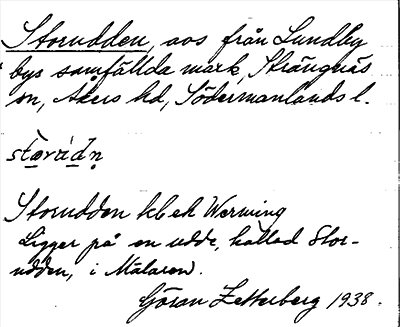 Storudden, avs från Lundby
bys samfällda mark, Strängnäs
sn, Åkers hd, Södermanlands l.
Storudden kbek Werming
Ligger på en udde, kallad Stor-
udden, i Mälaren.
Göran Zetterberg 1938.